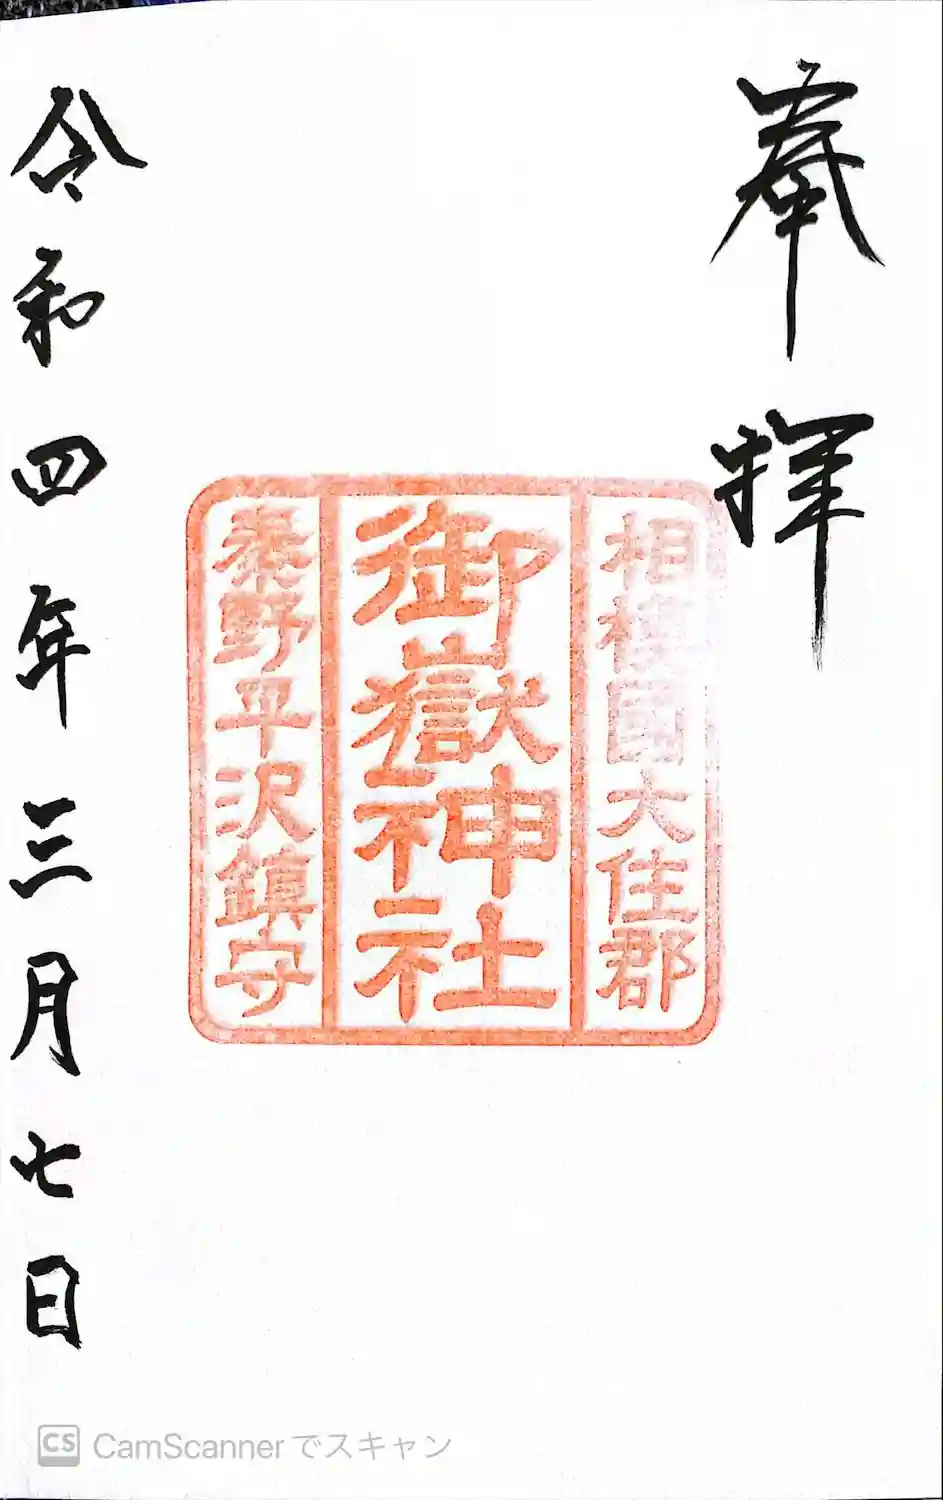 奉拝
相模國大住郡
御嶽神社
秦野平沢鎮守
令和四年三月七日
CS CamScannerでスキャン